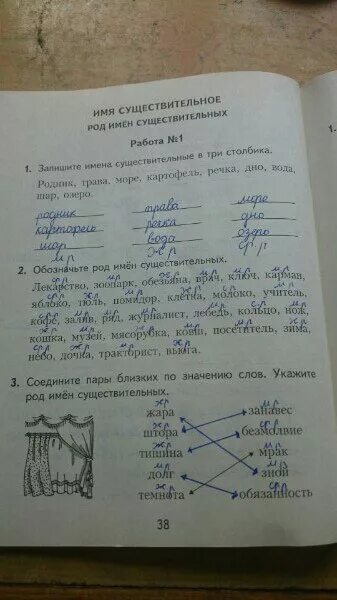 ИМЯ СУЩЕСТВИТЕЛЬНОЕ
РОД ИМЁН СУЩЕСТВИТЕЛЬНЫХ
Работа №1
1. Запишите имена существительные в три столбика.
Родник, трава, море, картофель, речка, дно, вода,
шар, озеро.
родник трава море
картофель речка дно
шар вода озеро
мр жр ср р
2. Обозначьте род имён существительных.
Лекарство, зоопарк, обезьяна, врач, ключ, карман,
яблоко, тюль, помидор, клетка, молоко, учитель,
кофе, залив, ряд, журналист, лебедь, кольцо, нож,
кошка, музей, мясорубка, ковш, посетитель, зима,
небо, дочка, тракторист, вьюга.
3. Соедините пары близких по значению слов. Укажите
род имён существительных.
жр мр
жара занавес
жр ср р
штора безмолвие
жр мр
тишина мрак
мр мр
долг зной
жр ср р
темнота обязанность
38
1.